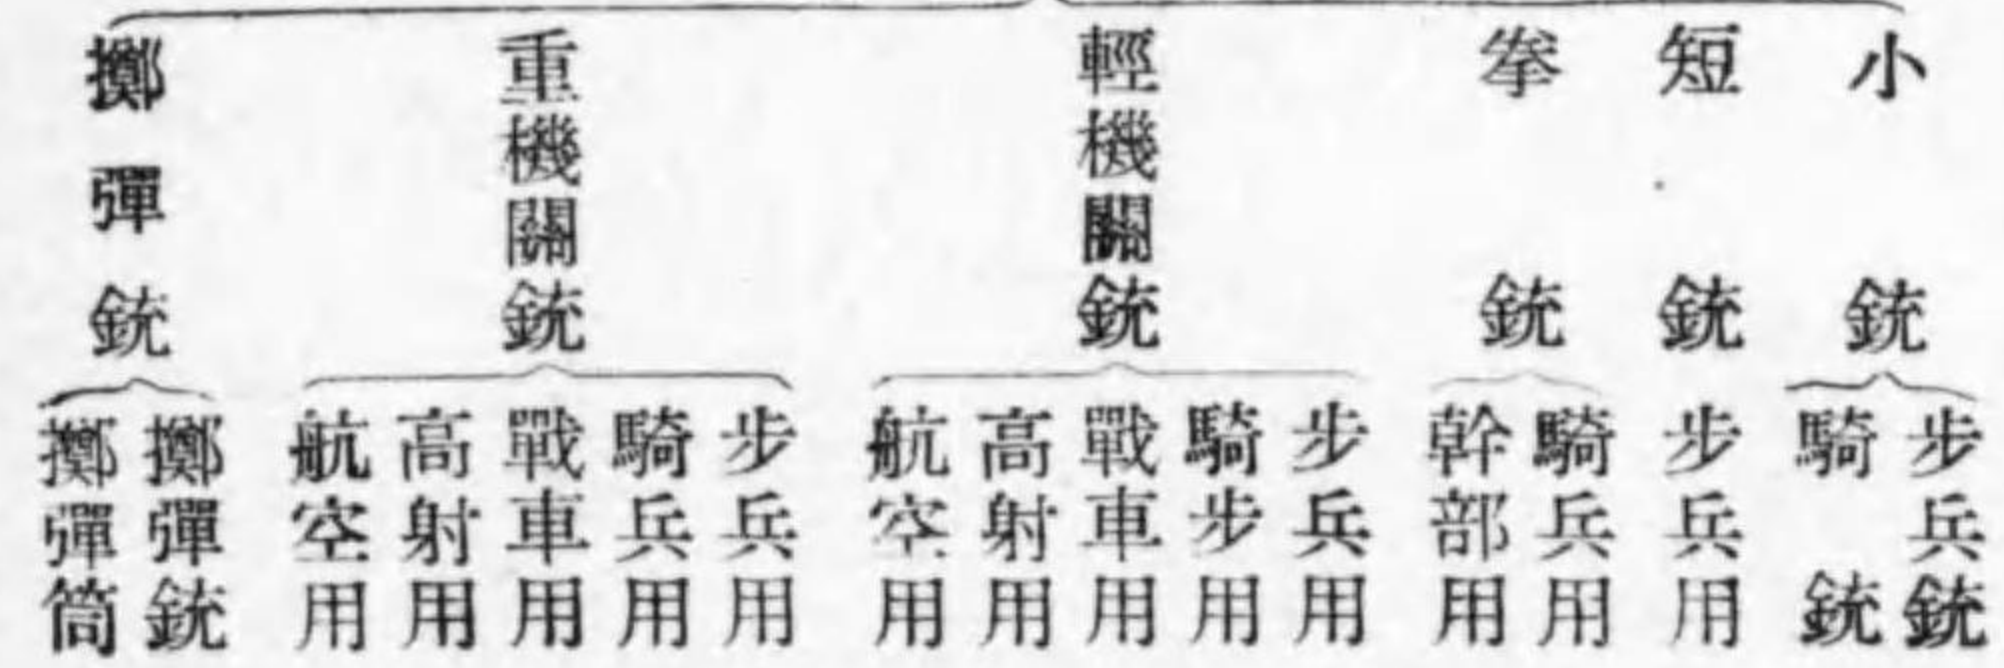 小銃
步兵銃
騎銃
短銃
步兵用
拳銃
騎兵用
幹部用
輕機關銃
步兵用
騎步用
戰車用
高射用
航空用
重機關銃
步兵用
騎兵用
戰車用
高射用
航空用
擲彈銃
擲彈銃
擲彈筒